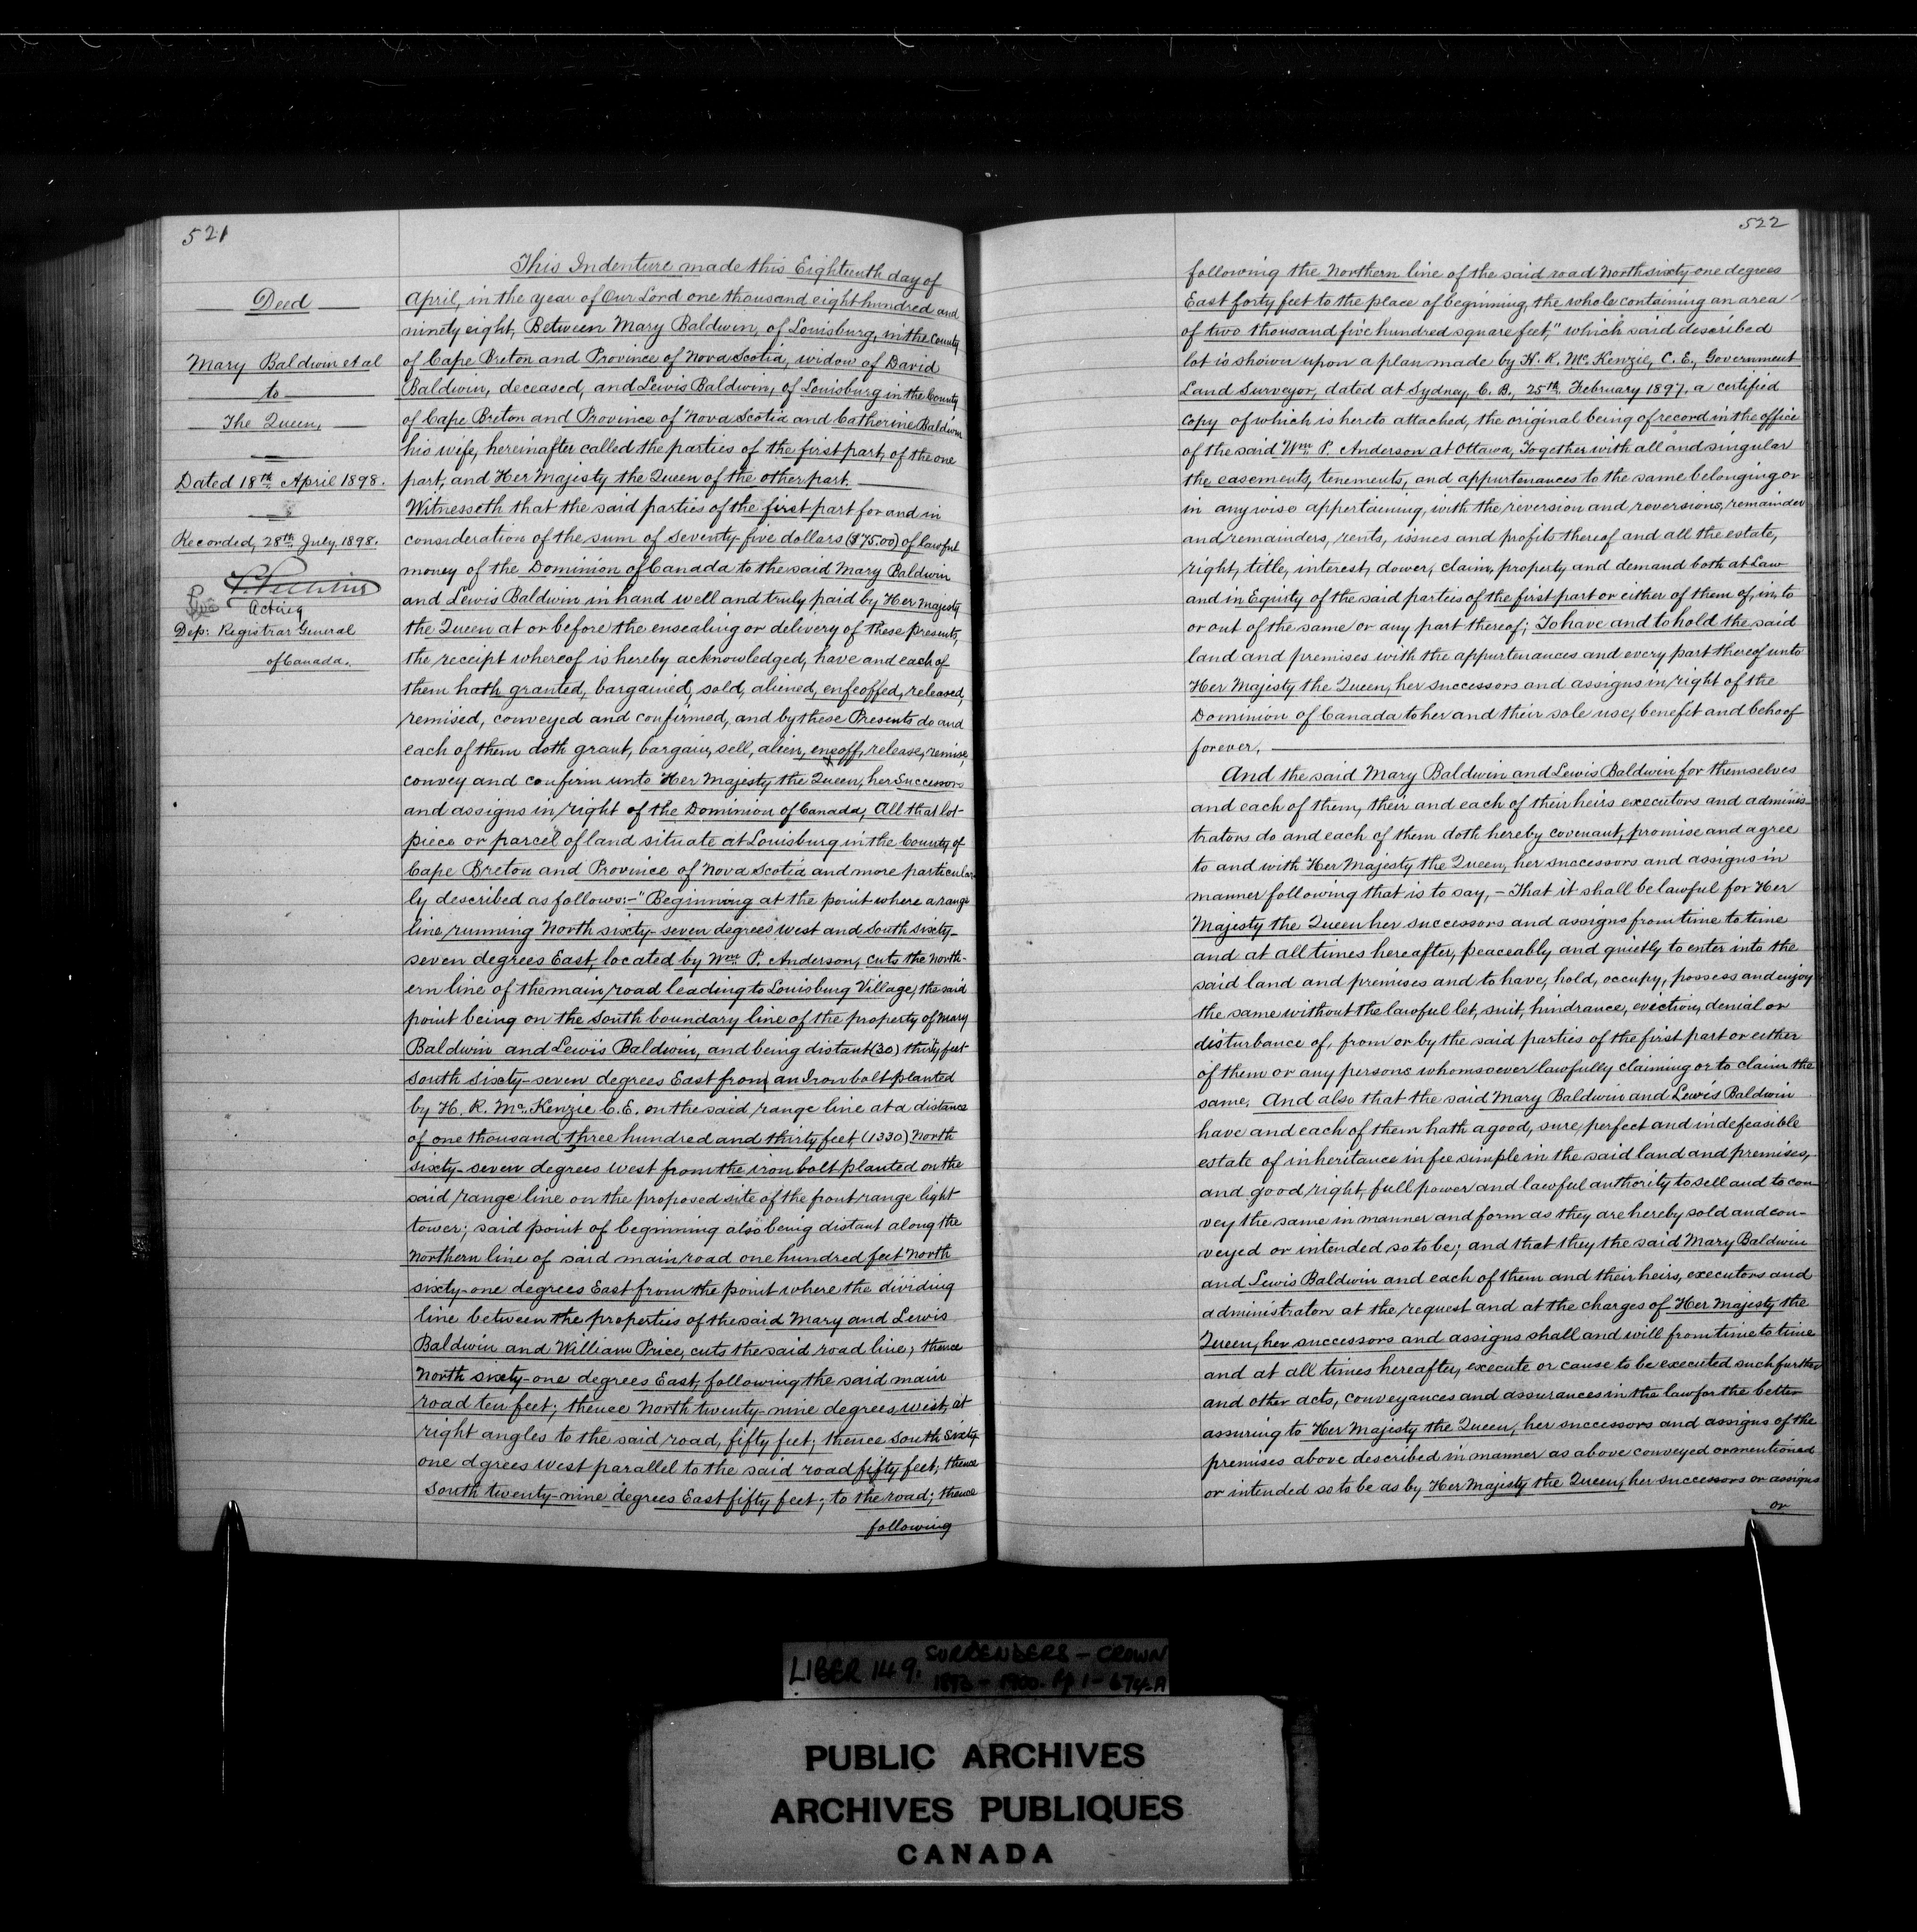 521
Deed
Mary Baldwin et al
to
The Queen,
Dated 18th April 1898.
Recorded, 28th July, 1898.
Acting
Dep: Registrar General
of Canada.
This Indenture made this Eighteenth day of
April, in the year of Our Lord one thousand eight hundred and
ninety eight, Between Mary Baldwin, of Louisburg, in the County
of Cape Breton and Province of Nova Scotia, widow of David
Baldwin, deceased, and Lewis Baldwin, of Louisburg in the County
of Cape Breton and Province of Nova Scotia and Catherine Baldwin
his wife, hereinafter called the parties of the first part, of the one
part, and Her Majesty the Queen of the other part.
Witnesseth that the said parties of the first part for and in
consideration of the sum of Seventy-five dollars ($75.00) of lawful
money of the Dominion of Canada to the said Mary Baldwin
and Lewis Baldwin in hand well and truly paid by Her Majesty
the Queen at or before the ensealing or delivery of these presents,
the receipt whereof is hereby acknowledged, have and each of
them hath granted, bargained, sold, aliened, enfeoffed, released,
remised, conveyed and confirmed, and by these Presents do and
each of them doth grant, bargain, sell, alien, eneoff, release, remise,
convey and confirm unto Her Majesty the Queen, her Successors
and assigns in right of the Dominion of Canada, All that lot
piece or parcel of land situate at Louisburg in the County of
Cape Breton and Province of Nova Scotia and more particular
ly described as follows:- "Beginning at the point where a range
line running North sixty-seven degrees west and South sixty-
seven degrees East, located by Wm. P. Anderson, cuts the North-
ern line of the main road leading to Louisburg Village, the said
point being on the South boundary line of the property of Mary
Baldwin and Lewis Baldwin, and being distant (30) thirty feet
South sixty-seven degrees East from an Iron bolt planted
by H. R. Mc. Kenzie C.E. on the said range line at a distance
of one thousand three hundred and thirty feet (1330) North
sixty-seven degrees west from the iron bolt planted on the
said range line on the proposed site of the front range light
tower; said point of beginning also being distant along the
Northern line of said main road one hundred feet North
sixty-one degrees East from the point where the dividing
line between the properties of the said Mary and Lewis
Baldwin and William Price, cuts the said road line, thence
North sixty-one degrees East, following the said main
road ten feet; thence North twenty-nine degrees west, at
right angles to the said road, fifty feet; thence South Sixty
one dgrees west parallel to the said road fifty feet; thence
South twenty-nine degrees East fifty feet; to the road; thence
following
522
following the Northern line of the said road North sixty-one degrees
East forty feet to the place of beginning, the whole containing an area
of two thousand five hundred square feet," which said described
lot is shown upon a plan made by H. R. Mc. Kenzie, C. E., Government
Land Surveyor, dated at Sydney, C. B., 25th February 1897. a certified
copy of which is hereto attached, the original being of record in the office
of the said Wm. P. Anderson at Ottawa, Together with all and singular
the easements, tenements, and appurtenances to the same belonging or
in any wise appertaining, with the reversion and reversions, remainder
and remainders, rents, issues and profits thereof and all the estate,
right, title, interest, dower, claim, property and demand both at Law
and in Equity of the said parties of the first part or either of them of, in, to
or out of the same or any part thereof; To have and to hold the said
land and premises with the appurtenances and every part thereof unto
Her Majesty the Queen, her successors and assigns in right of the
Dominion of Canada to her and their sole use, benefit and behoof
forever,
And the said Mary Baldwin and Lewis Baldwin for themselves
and each of them, their and each of their heirs executors and adminis
trators do and each of them doth hereby covenant, promise and agree
to and with Her Majesty the Queen, her successors and assigns in
manner following that is to say, - That it shall be lawful for Her
Majesty the Queen her successors and assigns from time to time
and at all times hereafter, peaceably and quietly to enter into the
said land and premises and to have, hold, occupy, possess and enjoy
the same without the lawful let, suit, hindrance, eviction, denial or
disturbance of, from or by the said parties of the first part or either
of them or any persons whomsoever lawfully claiming or to claim the
same. And also that the said Mary Baldwin and Lewis Baldwin
have and each of them hath a good, sure, perfect and indefeasible
estate of inheritance in fee simple in the said land and premises,
and good right, full power and lawful authority to sell and to con-
vey the same in manner and form as they are hereby sold and con-
veyed or intended so to be; and that they the said Mary Baldwin
and Lewis Baldwin and each of them and their heirs, executors and
administrators at the request and at the charges of Her Majesty the
Queen, her successors and assigns shall and will from time to time
and at all times hereafter, execute or cause to be executed such further
and other acts, conveyances and assurances in the law for the better
assuring to Her Majesty the Queen, her successors and assigns of the
premises above described in manner as above conveyed or mentioned
or intended so to be as by Her Majesty the Queen, her successors or assigns
or
LIBER 149. SURRENDERS - CROWN
1893 - 1900. Pp 1 - 674-A
PUBLIC ARCHIVES
ARCHIVES PUBLIQUES
CANADA